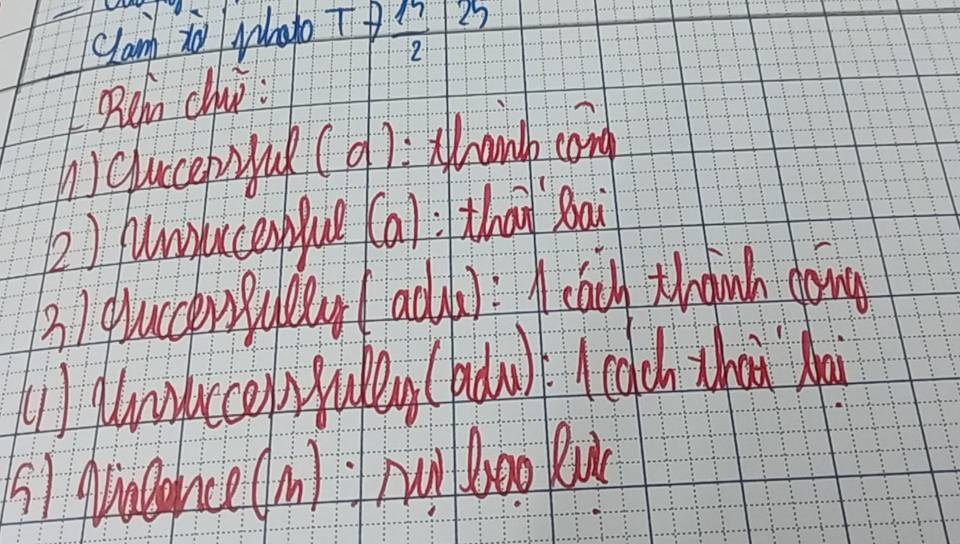 Làm từ photo T → 15/2 25
Rèn chữ:
1) Successful (a): thành công
2) Unsuccessful (a): thất bại
3) Successfully (adv): 1 cách thành công
4) Unsuccessfully (adv): 1 cách thất bại
5) Violence (n): sự bạo lực